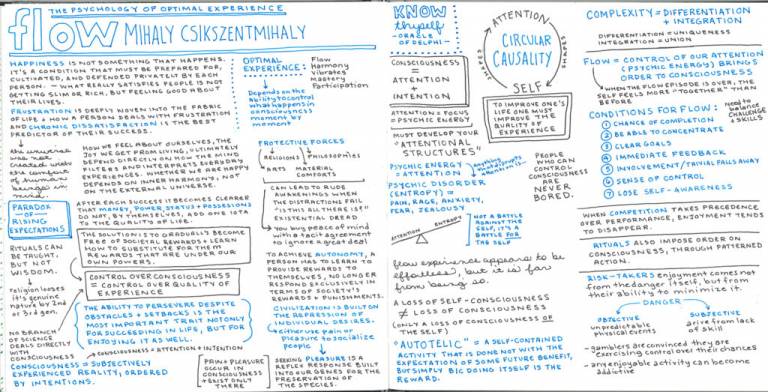 THE PSYCHOLOGY OF OPTIMAL EXPERIENCE
flow MIHALY CSIKSZENTMIHALY
HAPPINESS IS NOT SOMETHING THAT HAPPENS.
IT'S A CONDITION THAT MUST BE PREPARED FOR,
CULTIVATED, AND DEFENDED PRIVATELY BY EACH
PERSON. - WHAT REALLY SATISFIES PEOPLE IS NOT
GETTING SLIM OR RICH, BUT FEELING GOOD ABOUT
THEIR LIVES.
FRUSTRATION IS DEEPLY WOVEN INTO THE FABRIC
OF LIFE & HOW A PERSON DEALS WITH FRUSTRATION
AND CHRONIC DISSATISFACTION IS THE BEST
PREDICTOR OF THEIR SUCCESS.
the universe
was not
created with
the comfort
of human
beings in
mind.
HOW WE FEEL ABOUT OURSELVES, THE
JOY WE GET FROM LIVING, ULTIMATELY
DEPEND DIRECTLY ON HOW THE MIND
FILTERS AND INTERPRETS EVERYDAY
EXPERIENCES. WHETHER WE ARE HAPPY
DEPENDS ON INNER HARMONY, NOT
ON THE EXTERNAL UNIVERSE.
PARADOX
-OF-
RISING
EXPECTATIONS
AFTER EACH SUCCESS IT BECOMES CLEARER
THAT MONEY, POWER, STATUS & POSSESSIONS
DO NOT, BY THEMSELVES, ADD ONE IOTA
TO THE QUALITY OF LIFE.
THE SOLUTION IS TO GRADUALLY BECOME
FREE OF SOCIETAL REWARDS & LEARN
HOW TO SUBSTITUTE FOR THEM
REWARDS THAT ARE UNDER OUR
OWN POWERS.
RITUALS CAN
BE TAUGHT,
BUT NOT
WISDOM.
CONTROL OVER CONSCIOUSNESS
= CONTROL OVER QUALITY OF
EXPERIENCE
religion loses
it's genuine
nature by 2nd
or 3rd gen.
THE ABILITY TO PERSEVERE DESPITE
OBSTACLES & SETBACKS IS THE
MOST IMPORTANT TRAIT NOT ONLY
FOR SUCCEEDING IN LIFE, BUT FOR
ENJOYING IT AS WELL.
NO BRANCH
OF SCIENCE
DEALS DIRECTLY
WITH
CONSCIOUSNESS
CONSCIOUSNESS = ATTENTION + INTENTION
CONSCIOUSNESS = SUBJECTIVELY
EXPERIENCED REALITY, ORDERED
BY INTENTIONS.
PAIN & PLEASURE
OCCUR IN
CONSCIOUSNESS
& EXIST ONLY
THERE
OPTIMAL
EXPERIENCE:
Flow
Harmony
Vibrates
Mastery
Participation
Depends on the
ability to control
what happens in
consciousness
moment by
moment
PROTECTIVE FORCES
RELIGIONS PHILOSOPHIES
ARTS MATERIAL
COMFORTS
CAN LEAD TO RUDE
AWAKENINGS WHEN
THE DISTRACTIONS FAIL
"IS THIS ALL THERE IS?"
EXISTENTIAL DREAD
You buy peace of mind
with a tacit agreement
to ignore a great deal
TO ACHIEVE AUTONOMY, A
PERSON HAS TO LEARN TO
PROVIDE REWARDS TO
THEMSELVES, NO LONGER
RESPOND EXCLUSIVELY IN
TERMS OF SOCIETY'S
REWARDS & PUNISHMENTS.
CIVILIZATION IS BUILT ON
THE REPRESSION OF
INDIVIDUAL DESIRES.
either use pain or
pleasure to socialize
people
SEEKING PLEASURE IS A
REFLEX RESPONSE BUILT
INTO OUR GENES FOR THE
PRESERVATION OF THE
SPECIES.
KNOW
thyself
-ORACLE
OF DELPHI-
ATTENTION
SHAPES
CIRCULAR
CAUSALITY
SHAPES
SELF
CONSCIOUSNESS
=
ATTENTION
+
INTENTION
ATTENTION = FOCUS
= PSYCHIC ENERGY
TO IMPROVE ONE'S
LIFE ONE MUST
IMPROVE THE QUALITY
OF EXPERIENCE
MUST DEVELOP YOUR
"ATTENTIONAL
STRUCTURES"
PSYCHIC ENERGY
= ATTENTION
Anything
that disrupts
attention is...
PSYCHIC DISORDER
(ENTROPY) =
PAIN, RAGE, ANXIETY,
FEAR, JEALOUSY
PEOPLE
WHO CAN
CONTROL
CONSCIOUSNESS
ARE
NEVER
BORED.
ATTENTION ENTROPY
NOT A BATTLE
AGAINST THE
SELF, IT'S A
BATTLE FOR
THE SELF
flow experience appears to be
effortless, but it is far
from being so.
A LOSS OF SELF-CONSCIOUSNESS
≠ LOSS OF CONSCIOUSNESS
(ONLY A LOSS OF CONSCIOUSNESS OF
THE SELF)
"AUTOTELIC" = A SELF-CONTAINED
ACTIVITY THAT IS DONE NOT WITH THE
EXPECTATION OF SOME FUTURE BENEFIT,
BUT SIMPLY B/C DOING ITSELF IS THE
REWARD.
COMPLEXITY = DIFFERENTIATION
+ INTEGRATION
DIFFERENTIATION = UNIQUENESS
INTEGRATION = UNION
FLOW = CONTROL OF OUR ATTENTION
(PSYCHIC ENERGY) BRINGS
ORDER TO CONSCIOUSNESS
WHEN THE FLOW EPISODE IS OVER, THE
SELF FEELS MORE "TOGETHER" THAN
BEFORE
CONDITIONS FOR FLOW:
Need to
balance
CHALLENGE
& SKILLS
1 CHANCE OF COMPLETION
2 BE ABLE TO CONCENTRATE
3 CLEAR GOALS
4 IMMEDIATE FEEDBACK
5 INVOLVEMENT/TRIVIAL FALLS AWAY
6 SENSE OF CONTROL
7 LOSE SELF-AWARENESS
WHEN COMPETITION TAKES PRECEDENCE
OVER PERFORMANCE, ENJOYMENT TENDS
TO DISAPPEAR.
RITUALS ALSO IMPOSE ORDER ON
CONSCIOUSNESS, THROUGH PATTERNED
ACTION.
RISK-TAKERS enjoyment comes not
from the danger itself, but from
their ability to minimize it.
DANGER
OBJECTIVE
unpredictable
physical events
SUBJECTIVE
arise from lack
of skill
- gamblers are convinced they are
exercising control over their chances
- any enjoyable activity can become
addictive